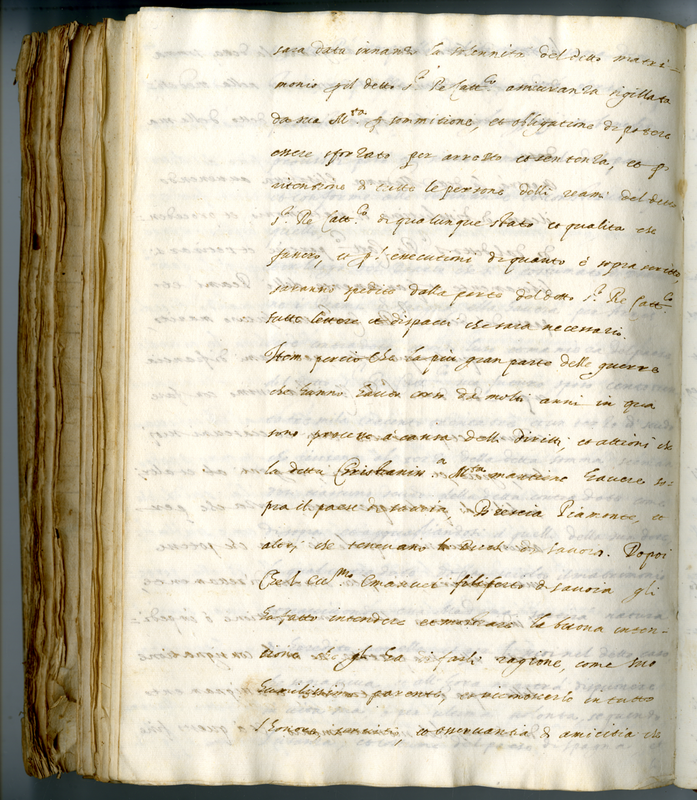 sara data innanzi la solennità del detto matri-
monio pel detto S.r Re Catt.co assicuranza sigillata
da sua M.tà, sommissione, et obligatione di potere
essere sforzato per arresto et sentenza, et
ritentione di tutte le persone delli reami del detto
S.r Re Catt.co di qualunque stato et qualita che
siano, et executioni di quanto è sopra scritto,
saranno spedite dalla parte del detto S.r Re Catt.co
tutte lettere et dispacci che sara necessario.
Item perciò che la più gran parte delle guerre
che hanno havuto corso da molti anni in qua
sono processe à causa delli diritti, et attioni che
la detta Cristianis.a M.tà mantiene havere so-
pra il paese di Savoia, Brescia Piamonte, et
altri che tenevano li Duchi di Savoia. Dopoi
che l'Ecc.mo Emanuel filiberto di Savoia gli
ha fatto intendere et mostrare la buona inten-
tione che gli ha di farli ragione, come suo
humilissimo parente, et ricuoscerlo in tutto
l'honore, et osservantia di amicitia che